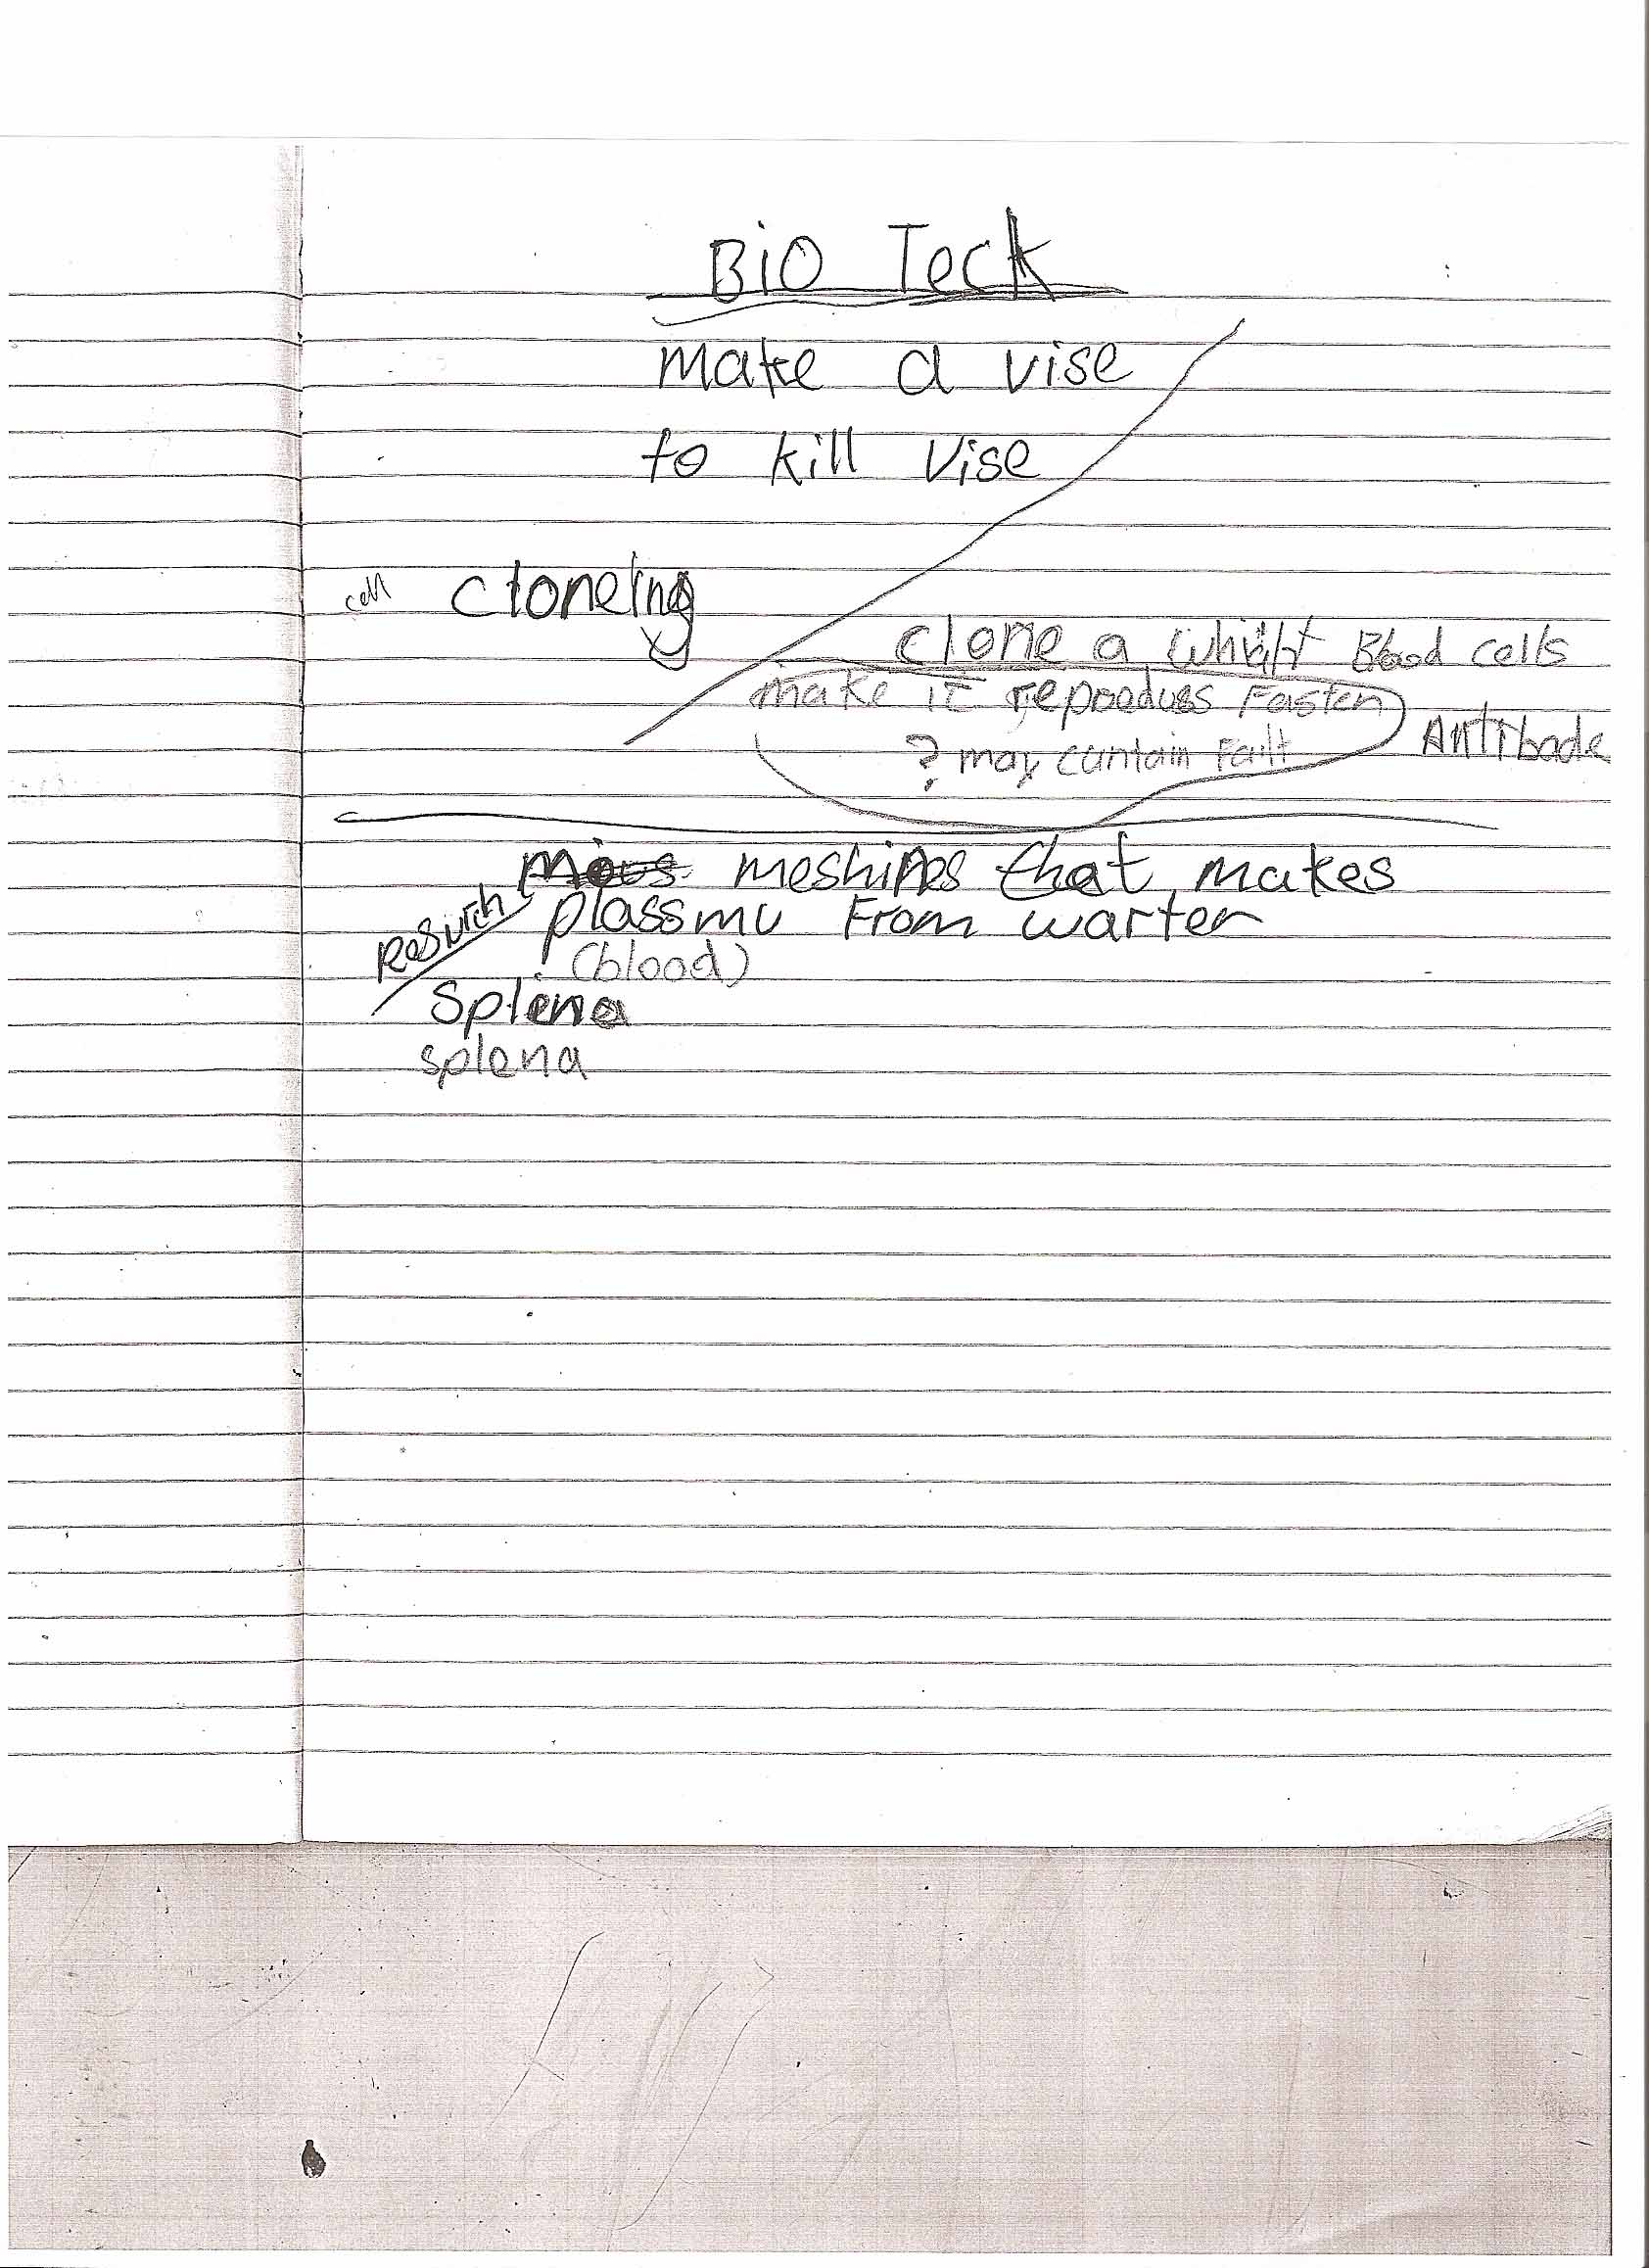 BiO Teck
make a vise
to kill vise
cell cloneing
clone a whiht Blood cells
make it reproduss Fasten
? may contain Fallt
Antibode
meshines that makes
Reserch plassmu From warter
(blood)
Splena
splena